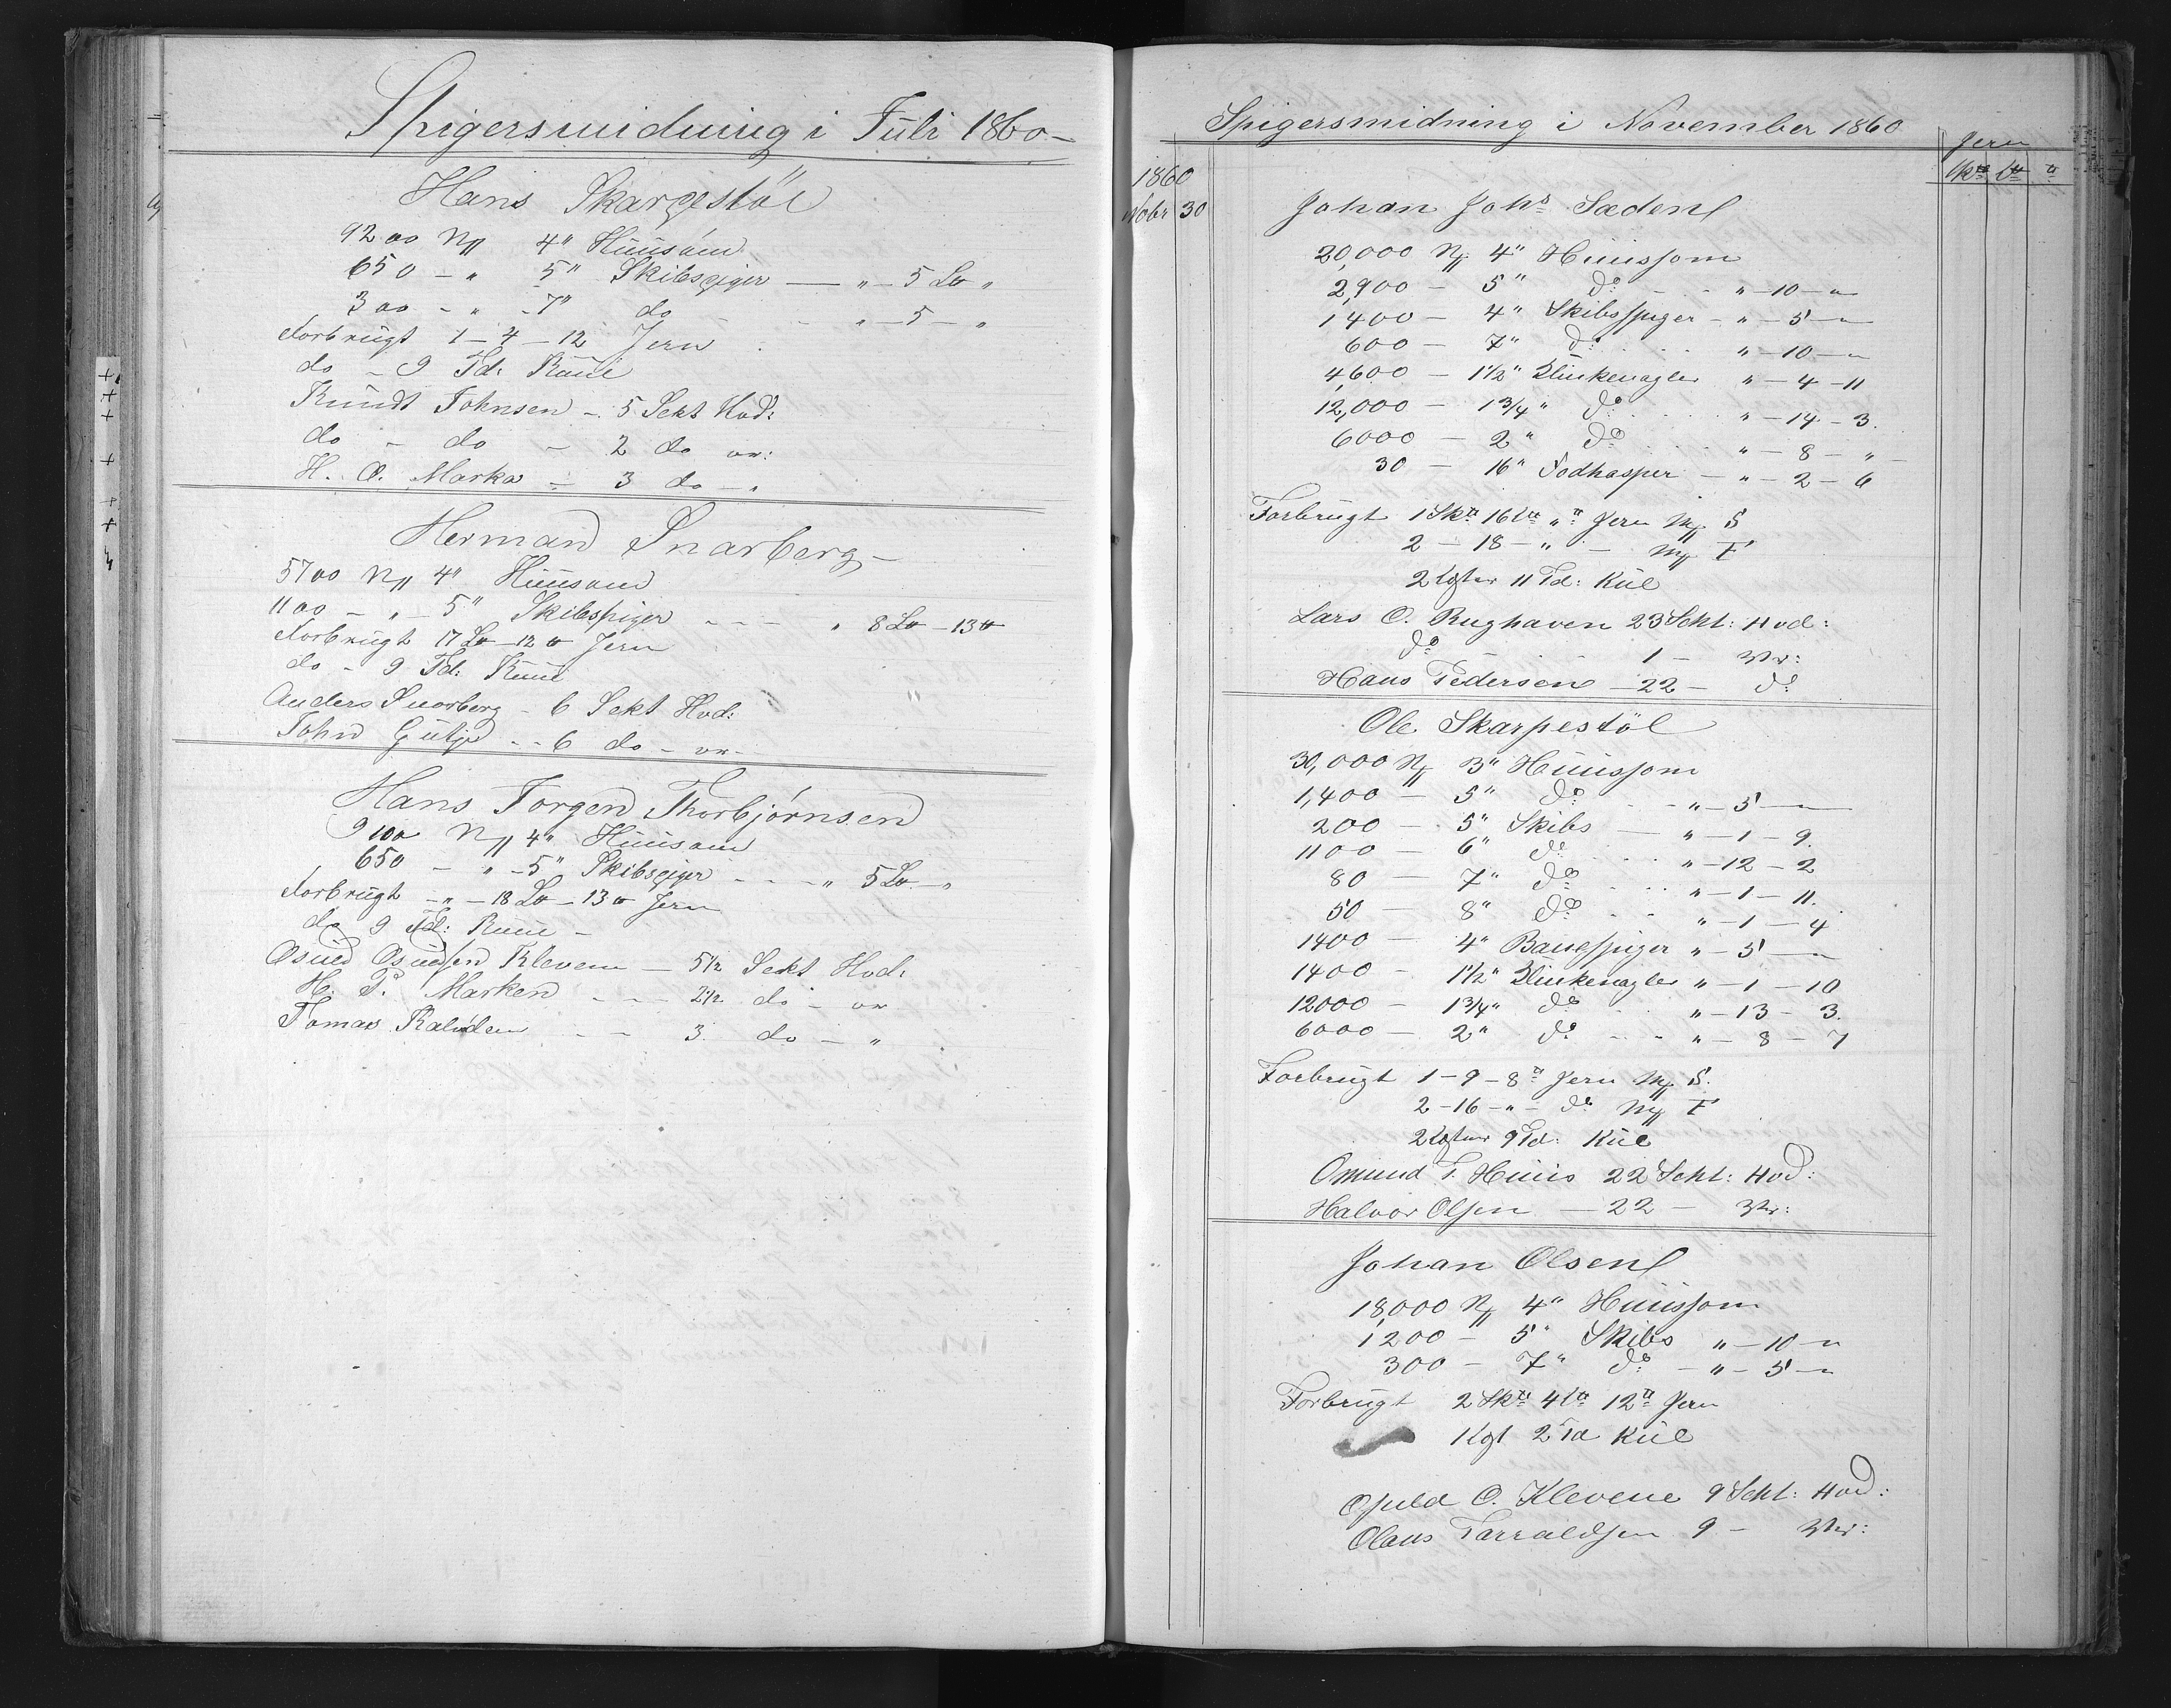 Spigersmidning i Juli 1860 –
Hans Skarpestöl
9200 N// 4" Huusöm
650 – " 5" Skibspiger — " – 5 L℔ "
300 – " – 7" do – – " – 5 – "
Forbrugt 1 – 4 – 12 Jern
do – 9 Td: Kuul
Knudt Johnsen – 5 Sekt Hvd:
do – do – 2 do ar:
H. O. Marka – 3 do – "
Herman Snarberg –
5700 N// 4" Huusom
1100 – " – 5" Skibspiger - - - " 8 L℔ – 13 ℔
Forbrugt 17 L℔ – 12 ℔ Jern
do – 9 Td: Kuul
Anders Snarberg – 6 Sekt Hvd:
John - - 6 do – ar –
Hans Jorgen Thorbjørnsen
9100 N// 4" Huusom
650 – " – 5" Skibspiger - - - " 5 L℔ – "
Forbrugt – " – 18 L℔ – 13 ℔ Jern
do 9 Td: Kuul –
Osuld Osuldsen Kleven – 5 1/2 Sekt Hvd:
H. P. Marken - - - 2 1/2 do – ar
Tomas - - 3 do – "
Spigersmidning i November 1860
Jern
Sk℔ L℔ ℔
1860
Nobr 30
Johan Johs Sædene
20,000 N// 4" Huussom
2,900 – 5" do - - " – 10 – "
1400 – 4" Skibsspiger – " – 5 – "
600 – 7" do . . . " – 10 – "
4600 – 1 1/2" Klinkenagler " – 4 – 11
12,000 – 1 3/4" do . . . . " – 14 – 3.
6000 – 2" do . . . " – 8 – "
30 – 16" Fodhasper – " – 2 – 6
Forbrugt 1 Sk℔ 16 L℔ " ℔ Jern M// S
2 – 18 – " – M// F
2 Lgter 11 Td: Kul
Lars O. Rughaven 23 Schl: Hvd:
do . . . 1 – Ar:
Hans Pedersen – 22 – do
Ole Skarpestöl
30,000 N// 3" Huussom
1,400 – 5" do - - " – 5 –
200 – 5" Skibs — " – 1 – 9.
1100 – 6" do . . . " – 12 – 2
80 – 7" do . . . " – 1 – 11.
50 – 8" do . . " – 1 – 4
1400 – 4" Baugspiger " – 5 – "
1400 – 1 1/2" Klinkenagler " – 1 – 10
12000 – 1 3/4" do . . " – 13 – 3.
6000 – 2" do - - " – 8 – 7
Forbrugt 1 – 9 – 8 ℔ Jern M// S.
2 – 16 – " – do M// F
2 Lgter 9 Td: Kul
Omund T. Huus 22 Schl: Hvd:
Halvor Olsen — 22 – Ar:
Johan Olsen
18,000 N// 4" Huussom
1,200 – 5" Skibs " – 10 – "
300 – 7" do – " – 5 – "
Forbrugt 2 Sk℔ 4 L℔ 12 ℔ Jern
1 Lgt 2 Td Kul
Osuld O. Klevene 9 Schl: Hvd:
Olaus Tarraldsen 9 – Ar: